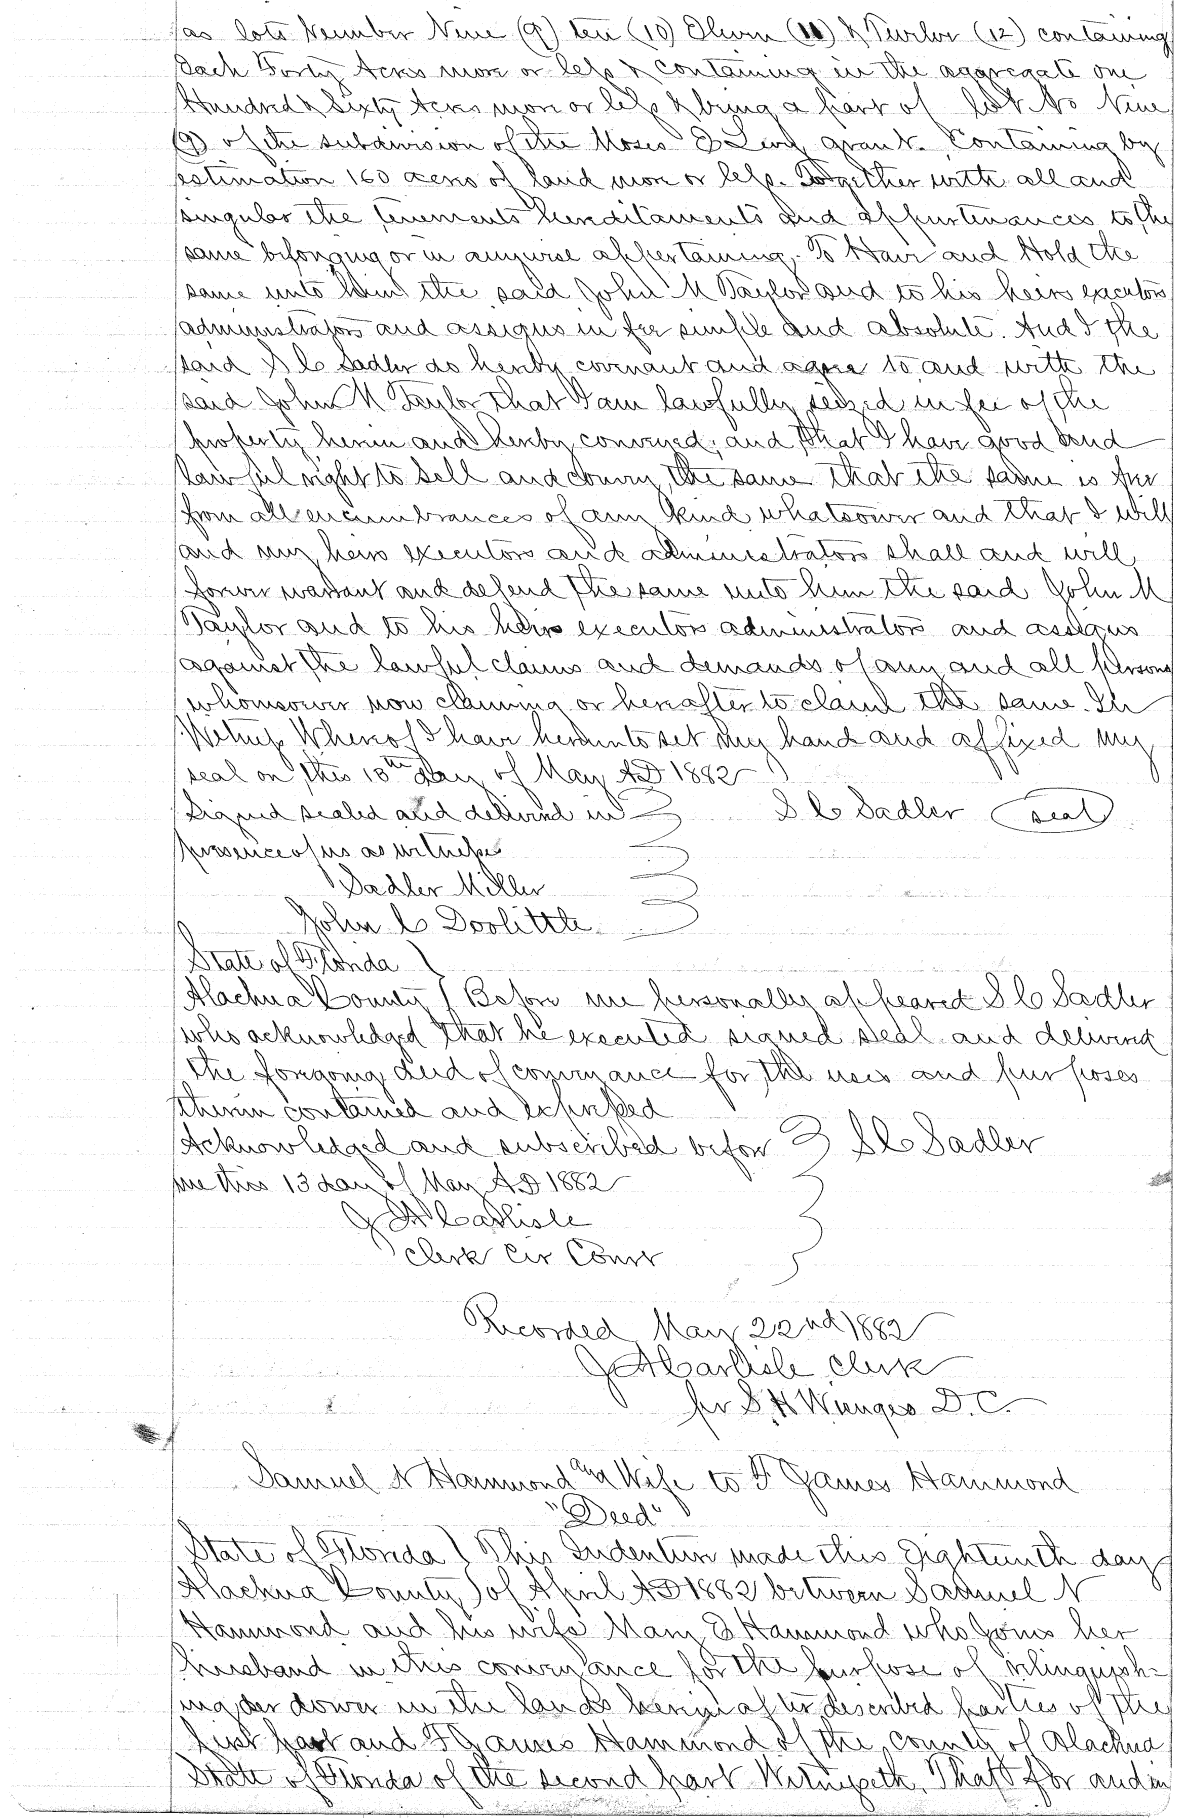 as lots Number Nine (9) ten (10) Eleven (11) & Twelve (12) containing
Each Forty Acres more or less & containing in the aggregate one
Hundred & Sixty Acres more or less & being a part of lot No Nine
(9) of the subdivision of the Moses E Levy grant. Containing by
estimation 160 acres of land more or less. Together with all and
singular the tenements hereditaments and appurtenances to the
same belonging or in anywise appertaining. To Have and Hold the
same unto him the said John M Taylor and to his heirs executors
administrators and assigns in fee simple and absolute. And I the
said S C Sadler do hereby covenant and agree to and with the
said John M Taylor that I am lawfully seized in fee of the
property herein and hereby conveyed; and that I have good and
lawful right to sell and convey the same that the same is free
from all encumbrances of any kind whatsoever and that I will
and my heirs executors and administrators shall and will
forever warrant and defend the same unto him the said John M
Taylor and to his heirs executors administrators and assigns
against the lawful claims and demands of any and all persons
whomsoever now claiming or hereafter to claim the same. In
Witness Whereof I have hereunto set my hand and affixed my
seal on this 13th day of May AD 1882
Signed sealed and delivered in S C Sadler seal
presence of us as witness
Sadler Miller
John C Doolittle
State of Florida
Alachua County Before me personally appeared S C Sadler
who acknowledged that he executed signed seal and delivered
the foregoing deed of conveyance for the uses and purposes
therein contained and expressed
Acknowledged and subscribed before S C Sadler
me this 13 day of May AD 1882
J A Carlisle
Clerk Cir Court
Recorded May 22nd 1882
J A Carlisle Clerk
per S. H Wienges D.C.
Samuel N Hammond and Wife to F James Hammond
"Deed"
State of Florida This Indenture made this Eighteenth day
Alachua County of April AD 1882 between Samuel N
Hammond and his wife Mary E Hammond who joins her
husband in this conveyance for the purpose of relinquish-
ing her dower in the lands herein after described parties of the
first part and F James Hammond of the County of Alachua
State of Florida of the second part Witnesseth, That for and in